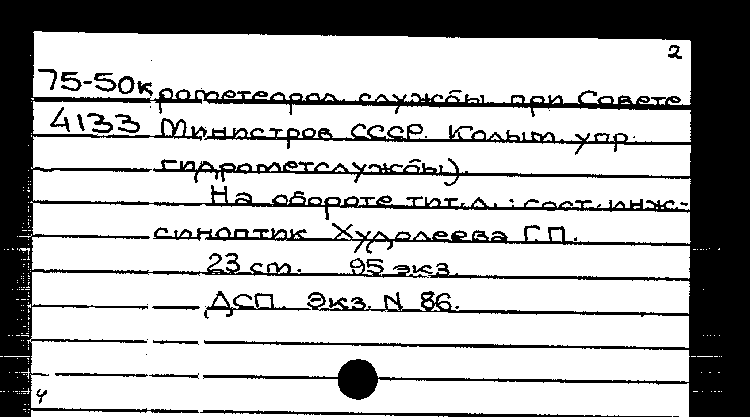 2
75-50к рометеорол. службы при Совете
4133 Министров СССР. Колым. упр.
гидрометслужбы).
На обороте тит.л.: сост. инж.-
синоптик Худолеева Г.П.
23 ст. 95 экз.
ДСП. Экз. N 86.